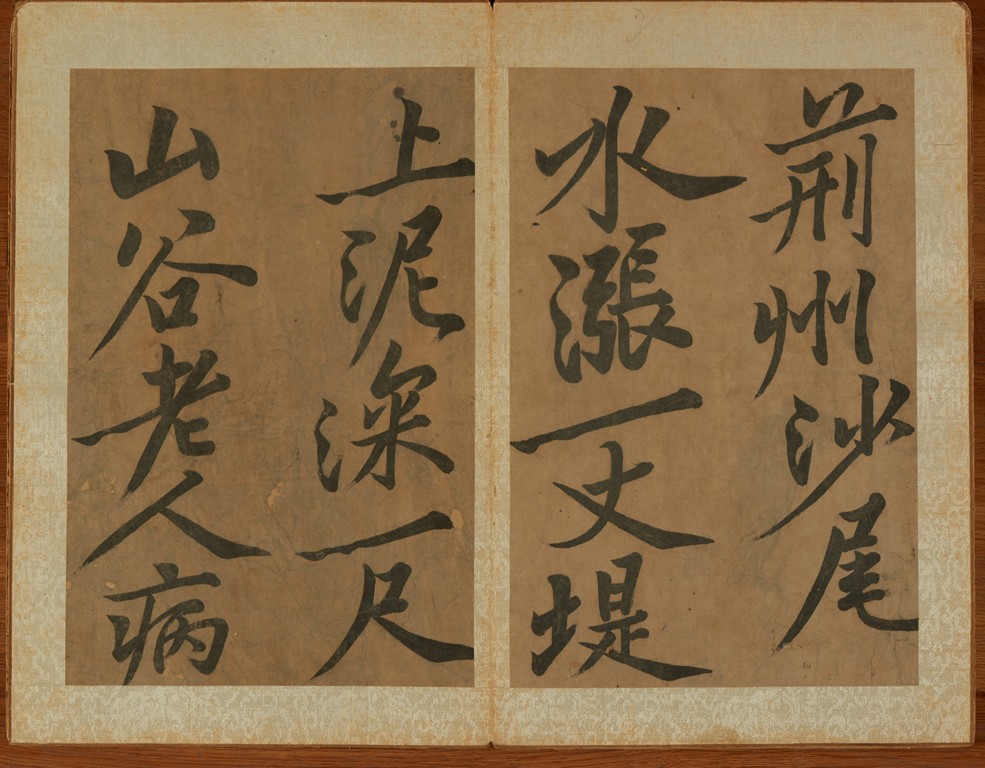 荊州沙尾
水漲一丈堤
上泥深一尺
山谷老人病